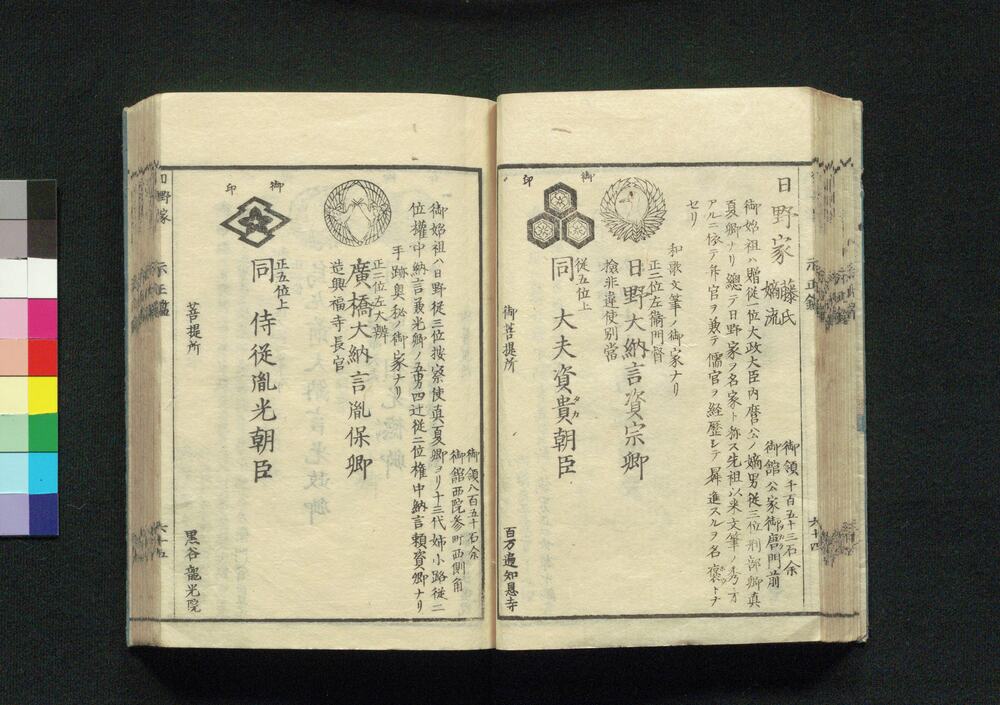 日野家 藤氏
嫡流
御領千百五十三石余
御館公家御唐門前
御始祖ハ贈従一位大政大臣内麿公ノ嫡男従三位刑部卿真
夏卿ナリ總テ日野家ヲ名家ト称ス先祖以来文筆ノ秀才
アルニ依テ弁官ヲ兼テ儒官ヲ経歴シテ昇進スルヲ名
セリ
和歌文筆ノ御家ナリ
正三位左衛門督
日野大納言資宗卿
檢非違使別當
御
印
従五位上
同 大夫資貴朝臣
タカ
御菩提所 百万遍知恩寺
六十四
御領八百五十石余
御館西院参町西側角
御始祖ハ日野従三位按察使真夏卿ヨリ十三代姉小路従二
位權中納言兼光卿ノ五男四辻従二位權中納言頼資卿ナリ
手跡奥秘ノ御家ナリ
正三位左大辨
廣橋大納言胤保卿
造興福寺長官
御
印
正五位上
同 侍従胤光朝臣
菩提所 黒谷龍光院
日野家
六十五